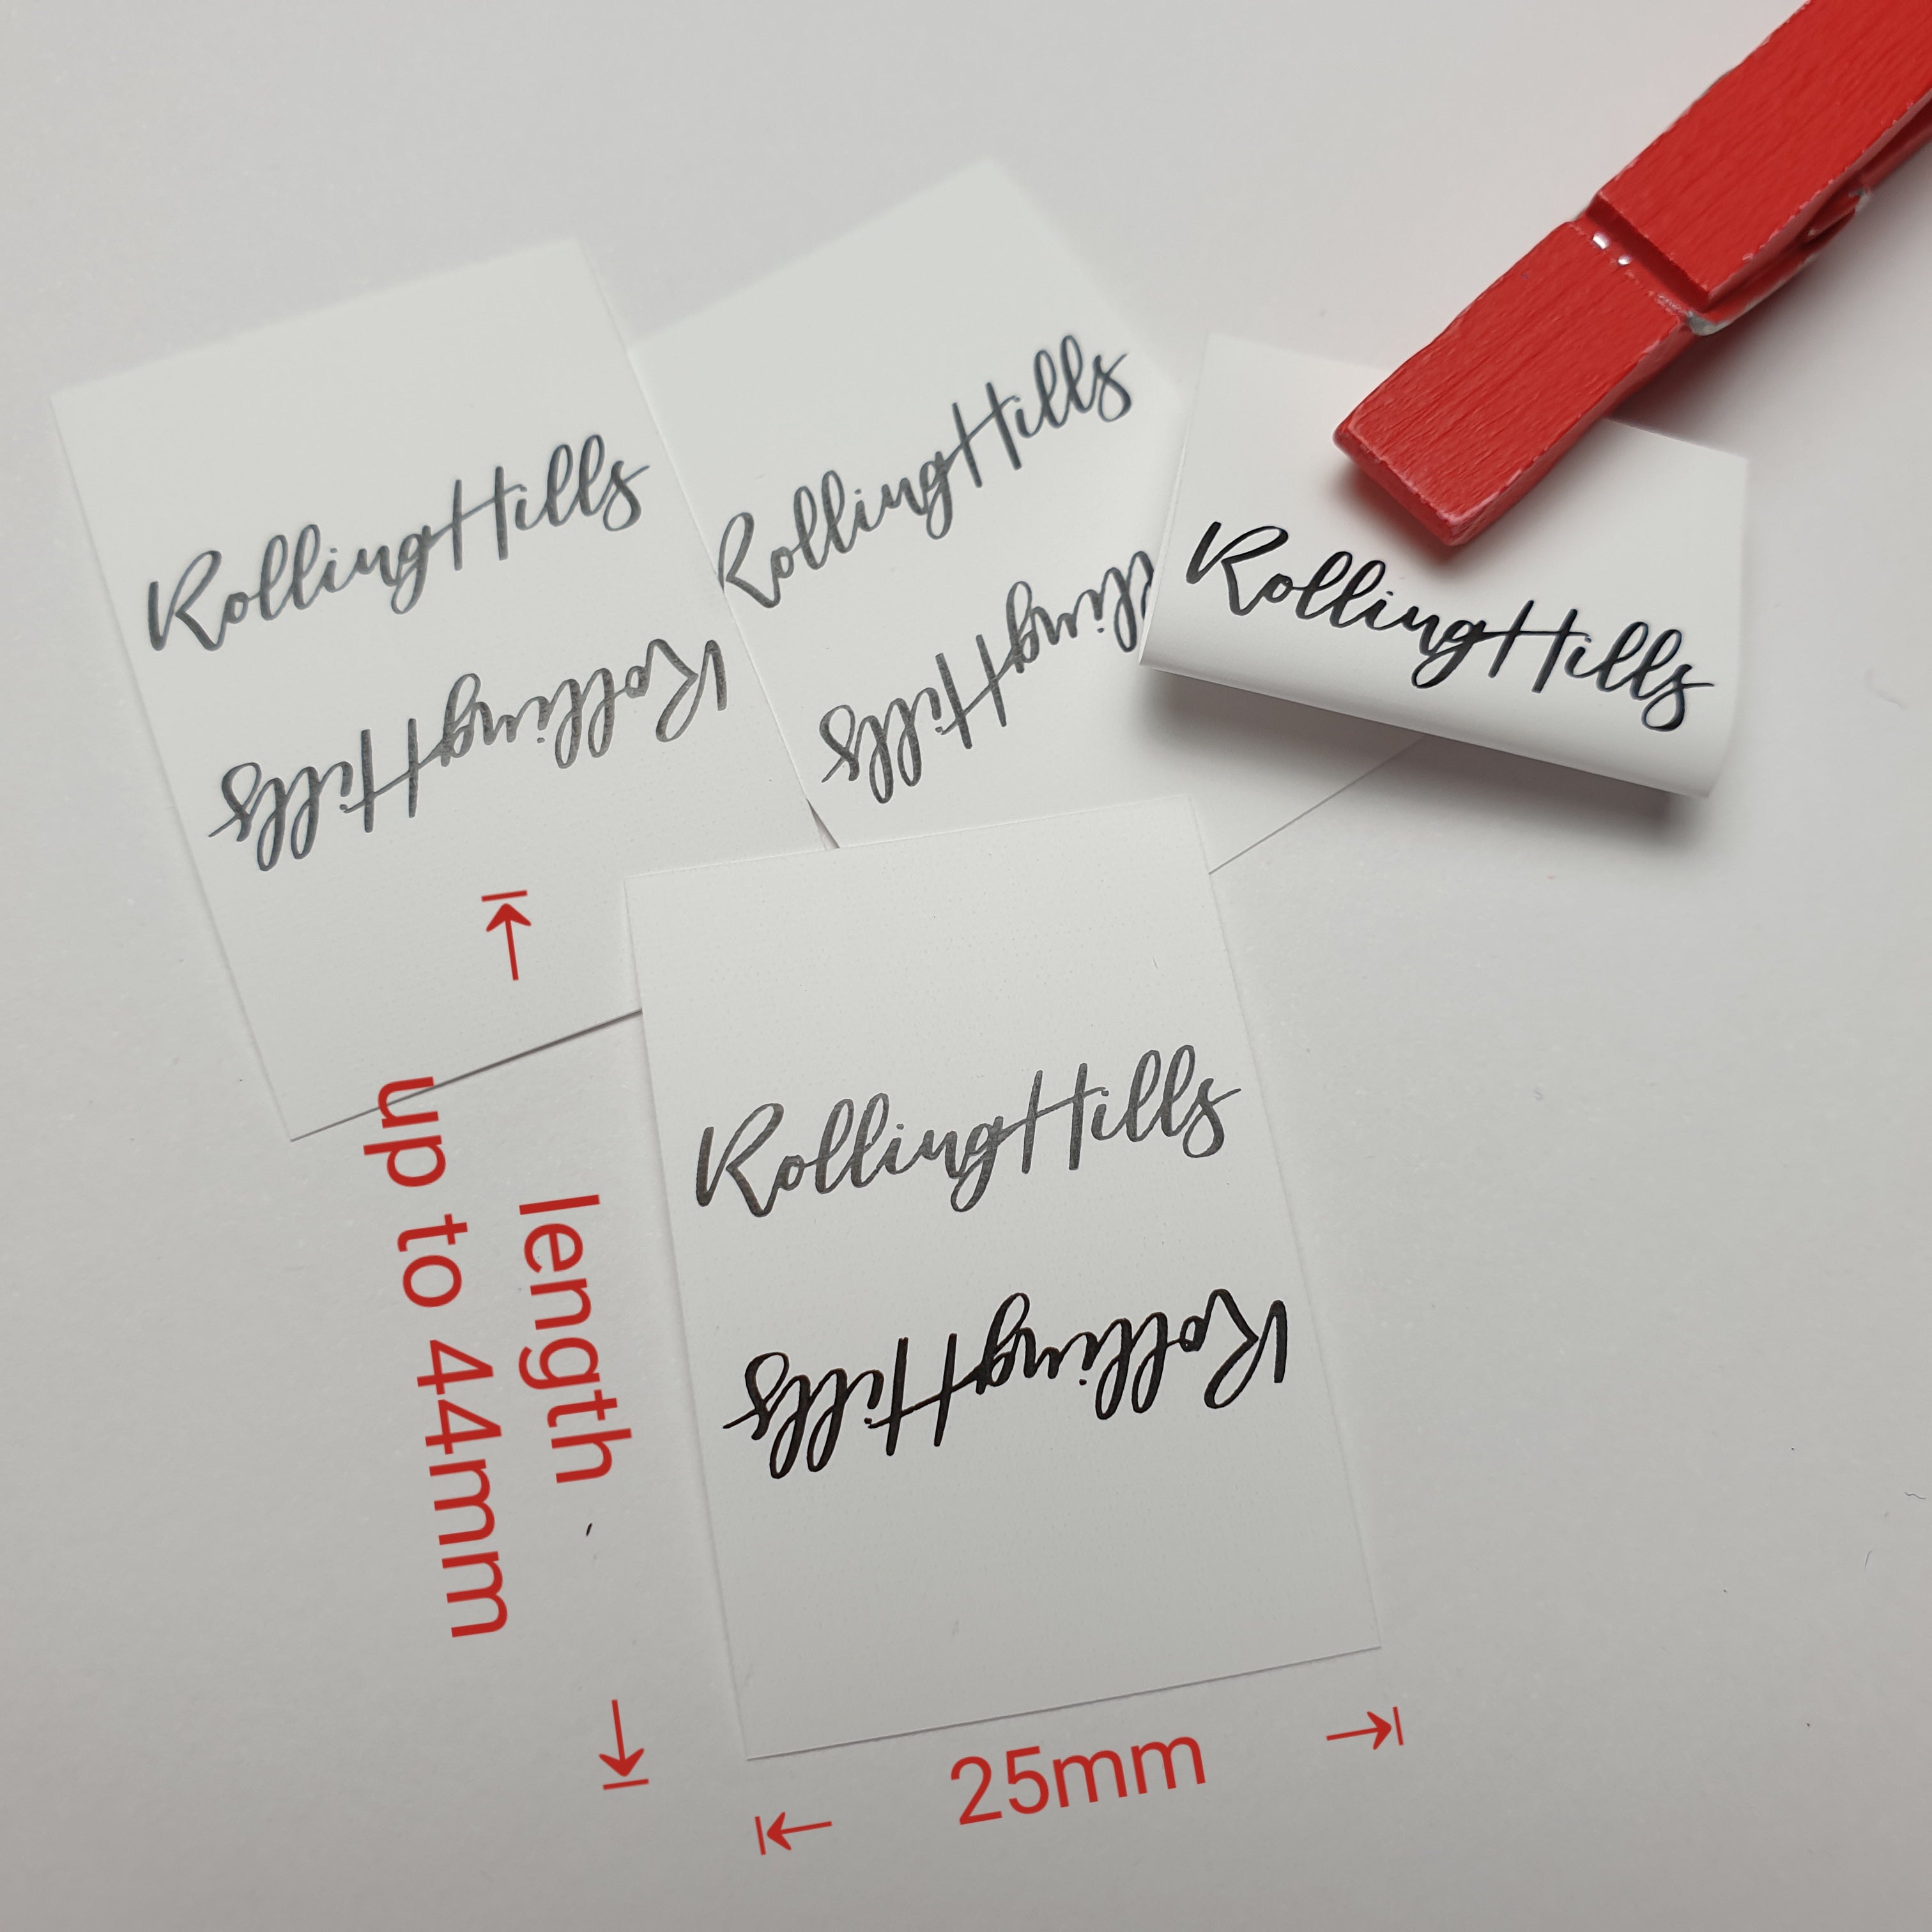 RollingHills
RollingHills
RollingHills
RollingHills
lingHills
RollingHills
RollingHills
RollingHills
length
up to 44mm
25mm